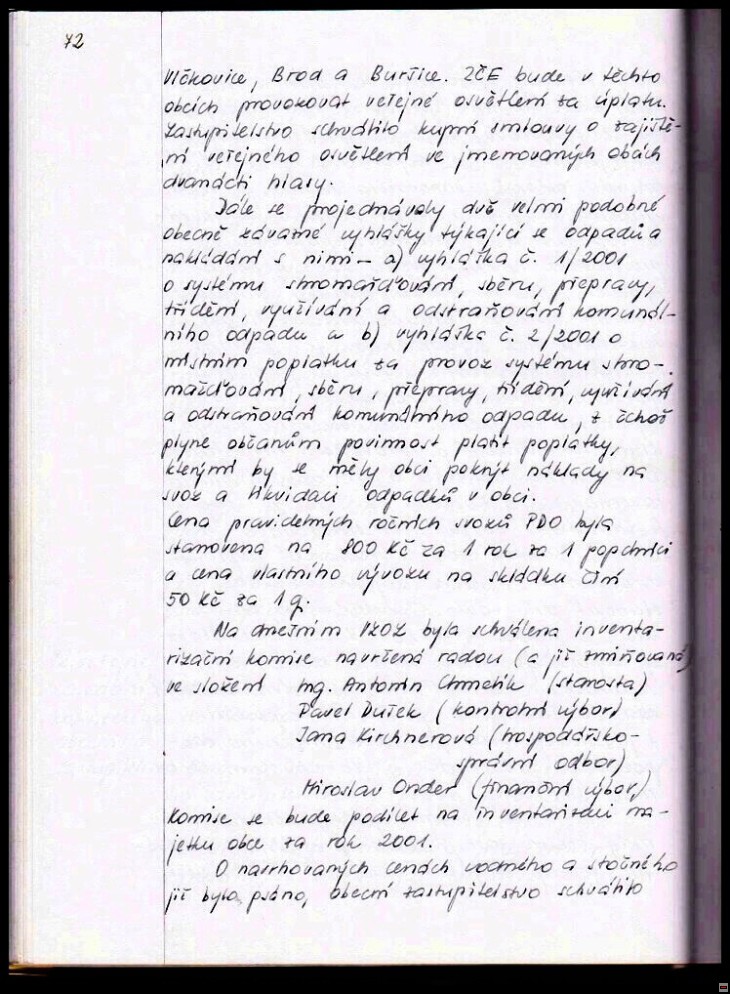 72
Vlčkovice, Brod a Buršice. ZČE bude v těchto
obcích provozovat veřejné osvětlení za úplatu.
Zastupitelstvo schválilo kupní smlouvy o zajiště-
ní veřejného osvětlení ve jmenovaných obcích
dvanácti hlasy.
Dále se projednávaly dvě velmi podobné
obecně závazné vyhlášky týkající se odpadů a
nakládání s nimi - a) vyhláška č. 1/2001
o systému shromažďování, sběru, přepravy,
třídění, využívání a odstraňování komunál-
ního odpadu a b) vyhláška č. 2/2001 o
místním poplatku za provoz systému shro-
mažďování, sběru, přepravy, třídění, využívání
a odstraňování komunálního odpadu, z čehož
plyne občanům povinnost platit poplatky,
kterými by se měly obci pokrýt náklady na
svoz a likvidaci odpadků v obci.
Cena pravidelných ročních svozů PDO byla
stanovena na 800 Kč za 1 rok za 1 popelnici
a cena vlastního vývozu na skládku činí
50 Kč za 1 q.
Na dnešním VZOZ byla schválena inventa-
rizační komise navržená radou (a již zmiňovaná)
ve složení Ing. Antonín Chmelík (starosta)
Pavel Dušek (kontrolní výbor)
Jana Kirchnerová (hospodářsko-
správní odbor)
Miroslav Onder (finanční výbor)
Komise se bude podílet na inventarizaci ma-
jetku obce za rok 2001.
O navrhovaných cenách vodného a stočného
již bylo psáno, obecní zastupitelstvo schválilo